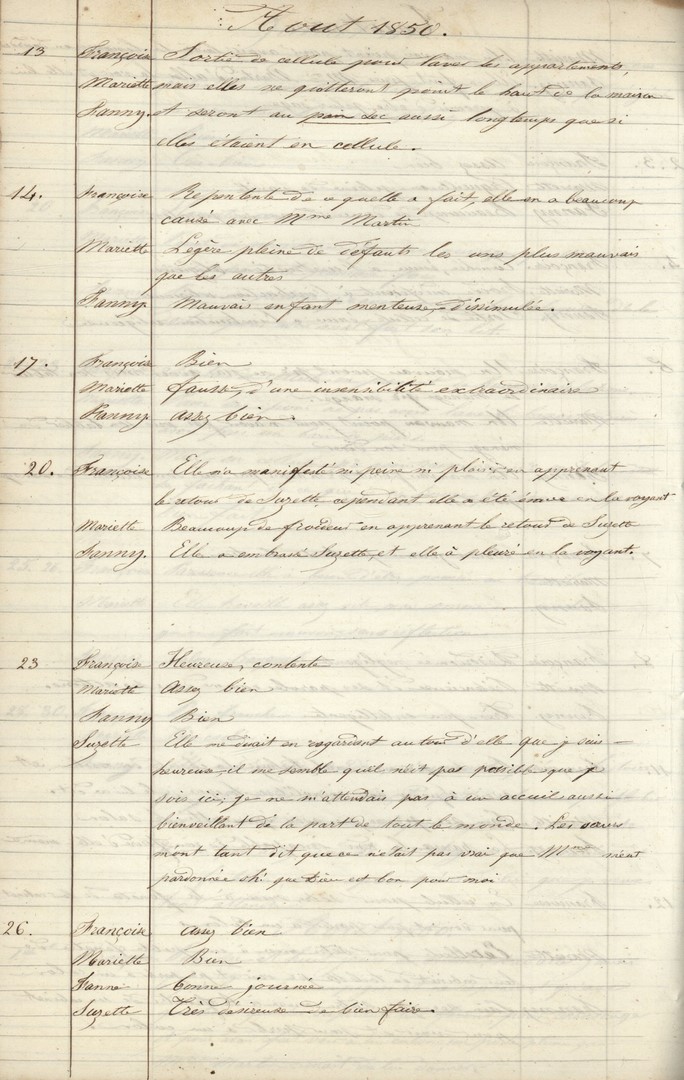 Aout 1850.
13 Françoise Sortie de cellule pour laver les appartements,
Mariette mais elles ne quitteront point le haut de la maison
Fanny. et seront au pain sec aussi longtemps que si
elles étaient en cellule.
14. Françoise Repentente de ce quelle a fait, elle en a beaucoup
causé avec Mme Martin
Mariette Légère pleine de défauts les uns plus mauvais
que les autres
Fanny. Mauvais enfant menteuse, dissimulée.
17. Françoise Bien
Mariette fausse, d'une insensibilité extraordinaire
Fanny. assez bien.
20. Françoise Elle n'a manifesté ni peine ni plaisir en apprenant
le retour de Suzette, cependant elle a été émue en la voyant
Mariette Beaucoup de froideur en apprenant le retour de Suzette
Fanny. Elle a embrassé Suzette, et elle à pleuré en la voyant.
23 Françoise Heureuse, contente
Mariette Assez bien
Fanny Bien
Suzette Elle me disait en regardant autour d'elle que je suis
heureuse, il me semble qu'il n'est pas possible que je
sois ici; je ne m'attendais pas à un accueil aussi
bienveillant de la part de tout le monde. Les
m'ont tant dit que ce n'était pas vrai que Mme m'eut
pardonnée oh! que Dieu est bon pour moi
26. Françoise assez bien
Mariette Bien
Fanne bonne journée
Suzette Très désireuse de bien faire.